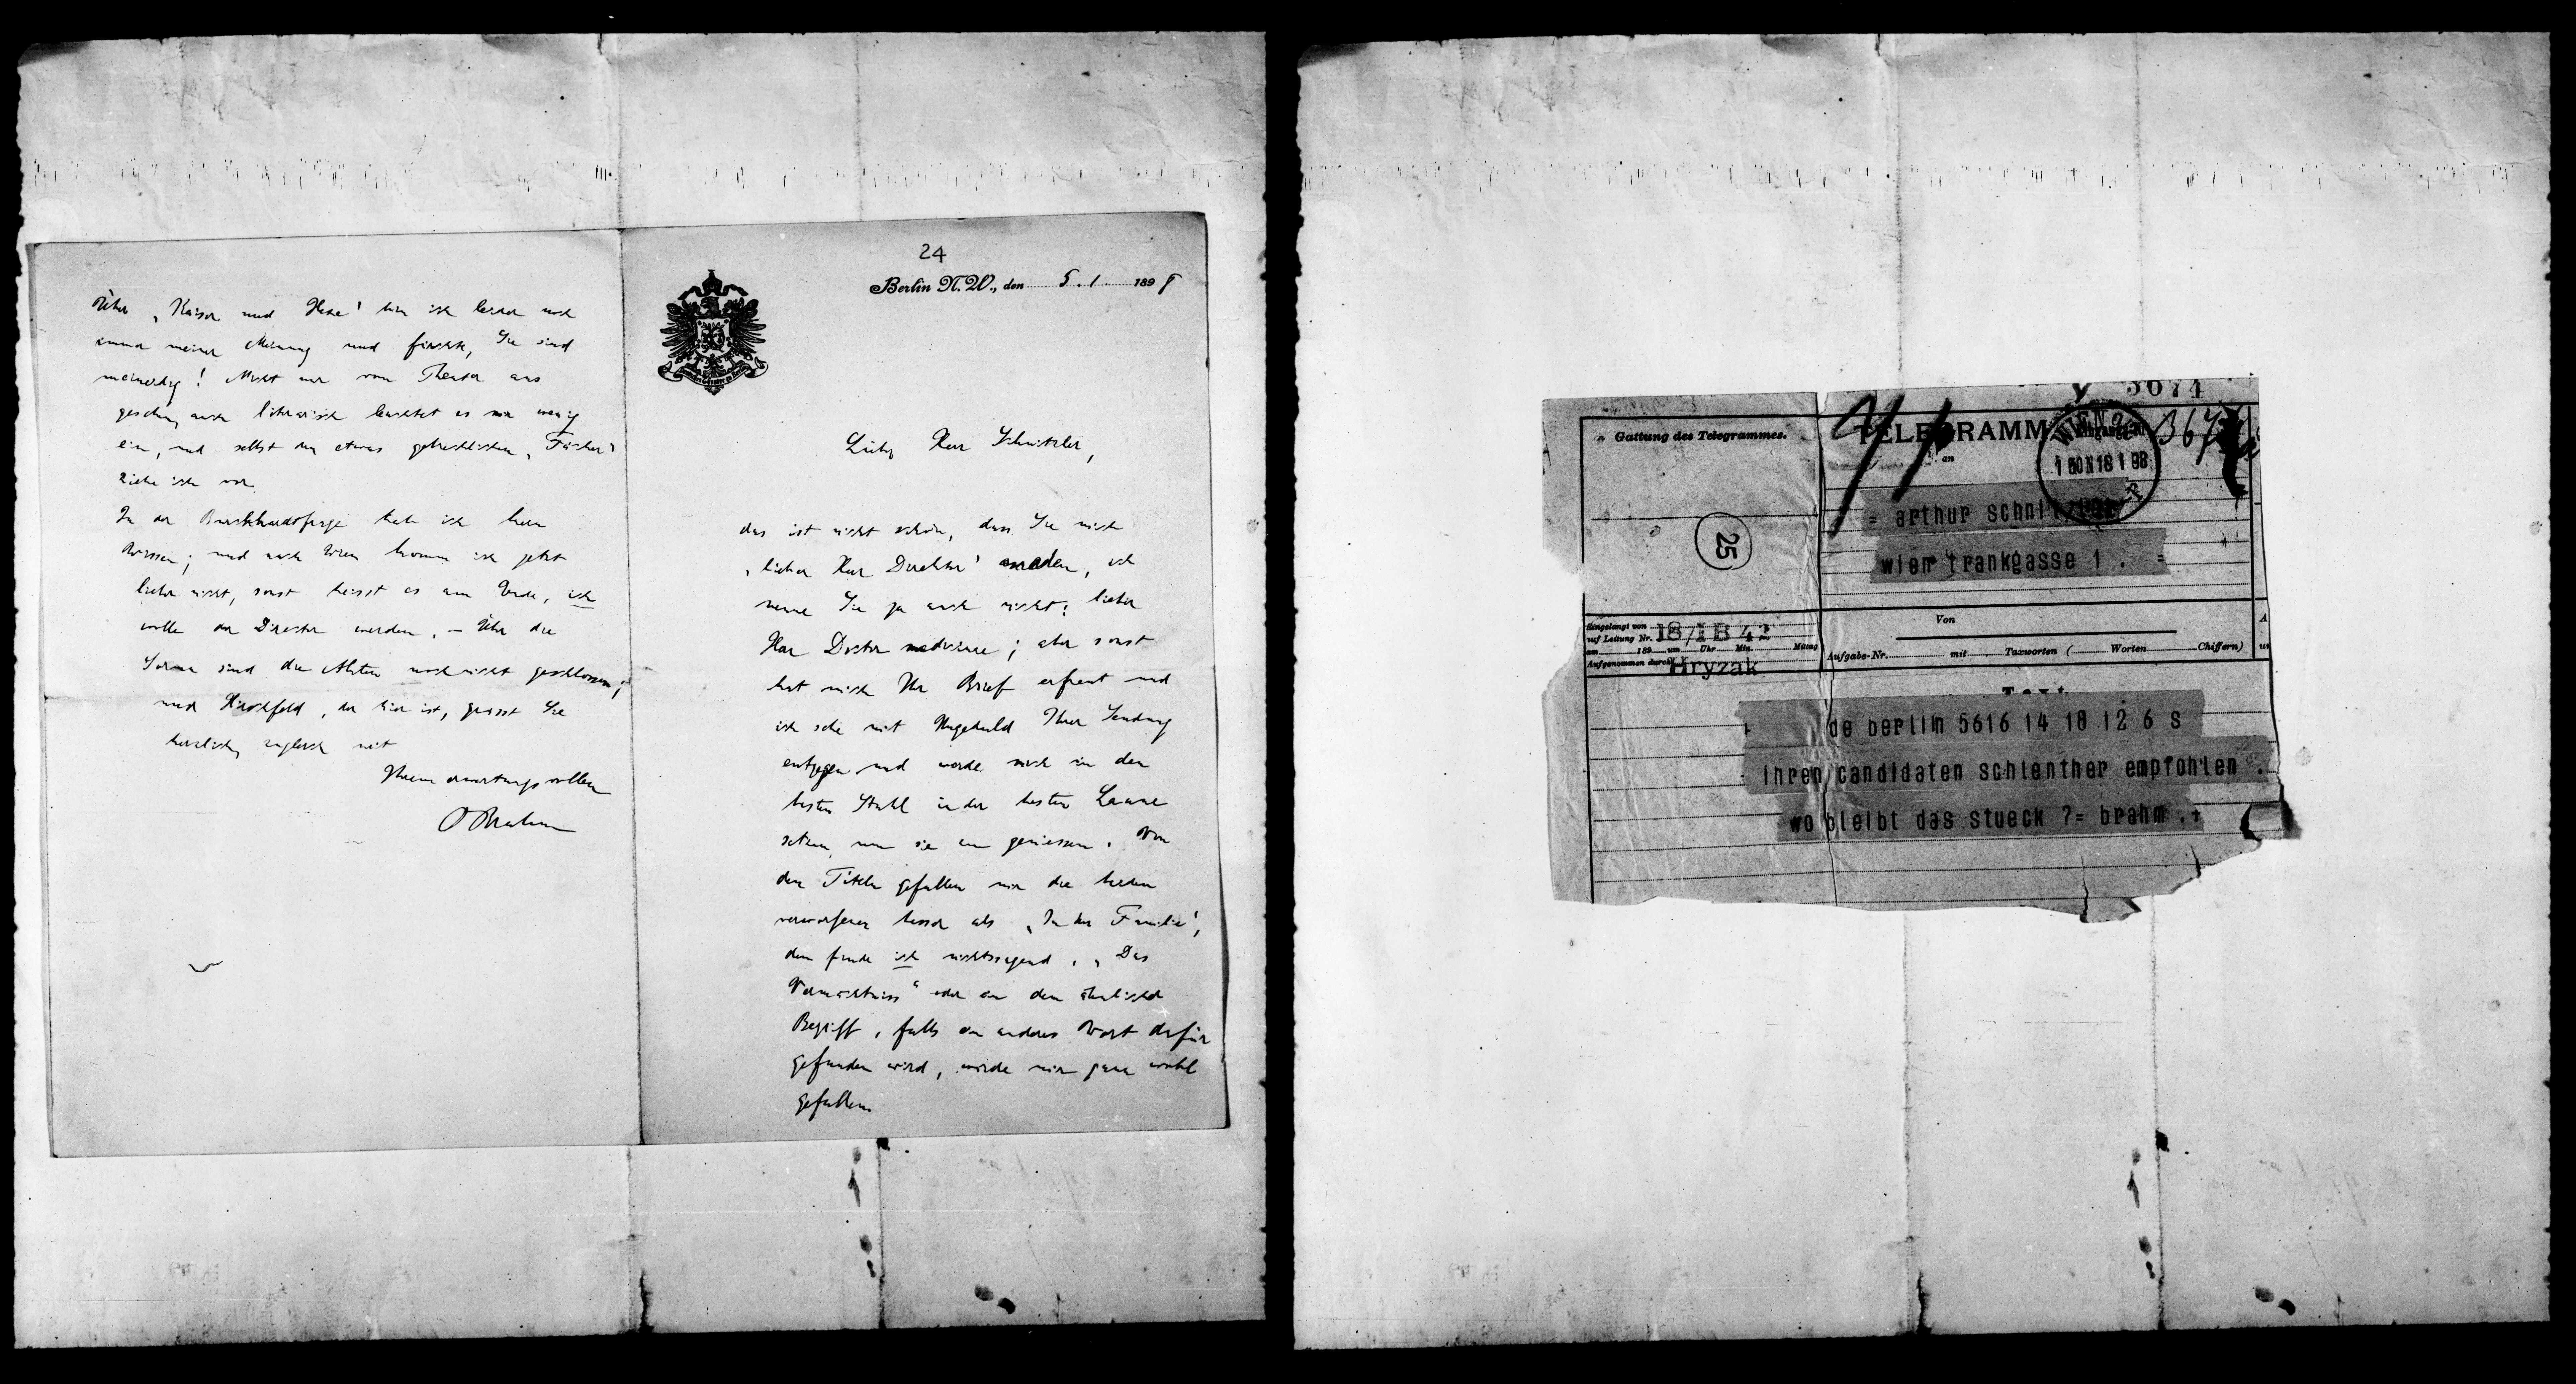 24
Berlin N.W., den 5. 1. 1898
Lieber Herr Schnitzler,
das ist nicht schön, dass Sie mich
„lieber Herr Direktor" anreden, ich
nenne Sie ja auch nicht: lieber
Herr Doctor medicinae; aber sonst
hat mich Ihr Brief erfreut und
ich sehe mit Ungeduld Ihrer Sendung
entgegen und werde mich in den
besten Stuhl in der besten Laune
setzen, um sie zu geniessen. Von
den Titeln gefallen mir die beiden
verworfenen besser als „In der Familie",
den finde ich nichtssagend. „Das
Vermächtniss" oder ein dem ähnlicher
Begriff, falls ein anderes Wort dafür
gefunden wird, würde mir ganz wohl
gefallen.
Über „Kaiser und Hexe" bin ich leider noch
immer meiner Meinung und fürchte, Sie sind
meineidig! Nicht nur vom Theater aus
gesehen, auch literarisch leuchtet es mir wenig
ein, und selbst den etwas gebrechlichen „Fächer"
ziehe ich vor.
In der Burckhardsfrage hab ich kein
Wissen; und nach Wien komme ich jetzt
lieber nicht, sonst heisst es am Ende, ich
wolle der Director werden. – Über die
Sorma sind die Akten noch nicht geschlossen;
und Hirschfeld, der hier ist, grüsst Sie
herzlich, zugleich mit
Ihrem erwartungsvollen
OBrahm
3674
Gattung des Telegrammes.
TELEGRAMM
an
WIEN
367
= arthur schnitzler
wien frankgasse 1 . =
25
Eingelangt von
auf Leitung Nr. 18/1 B 42
am 189 um Uhr Min. Mittag
Aufgenommen durch Hryzak
Von
Aufgabe-Nr. mit Taxworten ( Worten Chiffern)
Text
de berlin 5616 14 18 12 6 s
ihren candidaten schlenther empfohlen .
wo bleibt das stueck ?= brahm .+